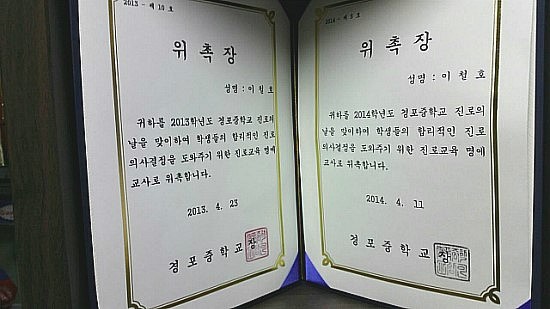 2013 - 제 10 호
위 촉 장
성명 : 이 철 호
귀하를 2013학년도 경포중학교 진로의
날을 맞이하여 학생들의 합리적인 진로
의사결정을 도와주기 위한 진로교육 명예
교사로 위촉합니다.
2013. 4. 23
경 포 중 학 교 장
2014 - 제 호
위 촉 장
성명 : 이 철 호
귀하를 2014학년도 경포중학교 진로의
날을 맞이하여 학생들의 합리적인 진로
의사결정을 도와주기 위한 진로교육 명예
교사로 위촉합니다.
2014. 4. 11
경 포 중 학 교 장